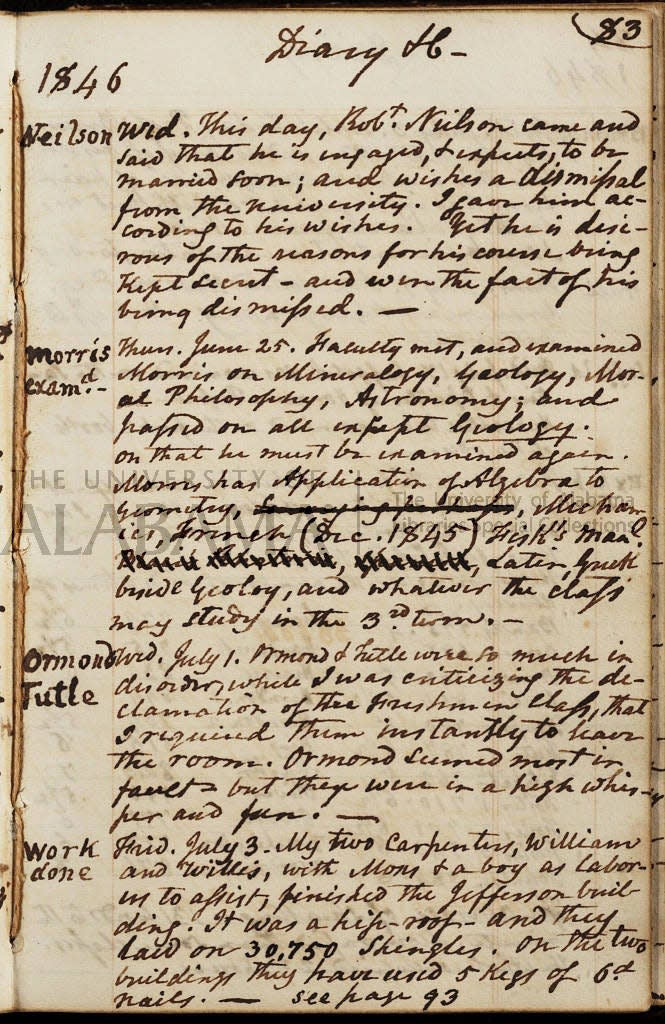 83
Diary &c -
1846
Neilson Wed. This day, Robt. Neilson came and
said that he is engaged, & expects, to be
married soon; and wishes a dismissal
from the university. I gave him ac-
cording to his wishes. Yet he is desi-
rous of the reasons for his course being
kept secret - and even the fact of his
being dismissed. —
Morris Thurs. June 25. Faculty met, and examined
examd. - Morris on Mineralogy, Geology, Mor-
al Philosophy, Astronomy; and
passed on all except Geology.
on that he must be examined again.
Morris has Application of Algebra to
Geometry, Surveying perhaps, Mechan-
ics, French (Dec. 1845) Fisk's Man.
Latin, Greek
beside Geoloy, and whatever the class
may study in the 3rd term. -
Ormond Wed. July 1. Ormond & Tutle were so much in
Tutle disorder, while I was criticizing the de-
clamation of the Freshmen Class, that
I required them instantly to leave
the room. Ormond seemed most in
fault - but they were in a high whis-
per and fun. —
Work Frid. July 3. My two Carpenters, William
done and Willis, with Mons & a boy as labor-
ers to assist, finished the Jefferson buil-
ding. It was a hip-roof - and they
laid on 30,750 Shingles. On the two
buildings they have used 5 Kegs of 6d
nails. — see page 93
THE UNIVERSITY OF
ALABAMA
The University of Alabama
Libraries Special Collections